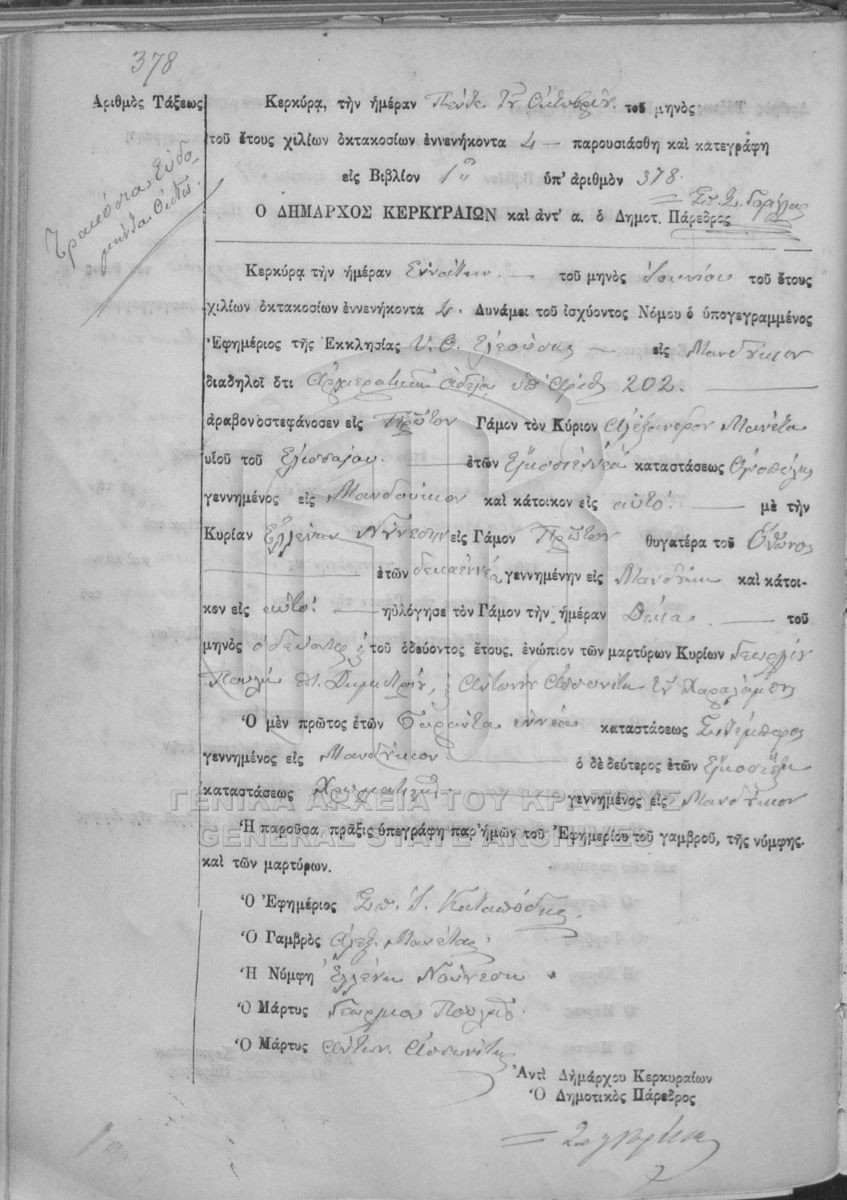 378
Ἀριθμὸς Τάξεως
Τρακόσια Εὐδο-
μήντα Ὀκτώ.
Κερκύρᾳ, τὴν ἡμέραν Πέντε Ὀκτωβρίου τοῦ μηνὸς
τοῦ ἔτους χιλίων ὀκτακοσίων ἐννενήκοντα 4 — παρουσιάσθη καὶ κατεγράφη
εἰς Βιβλίον 1ον ὑπ' ἀριθμὸν 378.
Ο ΔΗΜΑΡΧΟΣ ΚΕΡΚΥΡΑΙΩΝ καὶ ἀντ' α. ὁ Δημοτ. Πάρεδρος
Κερκύρᾳ τὴν ἡμέραν Ἐννάτην — τοῦ μηνὸς Ἰουνίου τοῦ ἔτους
χιλίων ὀκτακοσίων ἐννενήκοντα 4. Δυνάμει τοῦ ἰσχύοντος Νόμου ὁ ὑπογεγραμμένος
Ἐφημέριος τῆς Ἐκκλησίας Υ. Θ. Ἐλεούσης — εἰς Μανδύκιον
διαδηλοῖ ὅτι Ἀρχιερατικῇ ἀδείᾳ ὑπ' ἀριθ 202.
ἀραβονοστεφάνοσεν εἰς Πρῶτον Γάμον τὸν Κύριον Ἀλέξανδρον Μανέτα
υἱοῦ τοῦ Ἐλισσαίου — ἐτῶν Εἰκοσιεννέα καταστάσεως Οἰνοπώλης
γεννημένος εἰς Μανδούκιον καὶ κάτοικον εἰς αὐτό. — μὲ τὴν
Κυρίαν Ἑλλένην Νούνεση εἰς Γάμον Πρῶτον θυγατέρα τοῦ Ὄθωνος
— ἐτῶν δεκαεννέα γεννημένην εἰς Μανδύκι καὶ κάτοι-
κον εἰς αὐτό. — ηὐλόγησε τὸν Γάμον τὴν ἡμέραν Δέκα. — τοῦ
μηνὸς τοῦ ὁδεύοντος ἔτους. ἐνώπιον τῶν μαρτύρων Κυρίων Γεωργίου
Πουλῆ Δημητρίου, Ἀντωνίου Ἀσπονίτη τοῦ Χαραλάμπη
Ὁ μὲν πρῶτος ἐτῶν Σαράντα ἐννέα καταστάσεως
γεννημένος εἰς Μανδύκιον — ὁ δὲ δεύτερος ἐτῶν Εἰκοσιέξι
καταστάσεως — γεννημένος εἰς Μανδύκιον
ΓΕΝΙΚΑ ΑΡΧΕΙΑ ΤΟΥ ΚΡΑΤΟΥΣ
GENERAL STATE ARCHIVES
Ἡ παροῦσα πρᾶξις ὑπεγράφη παρ' ἡμῶν τοῦ Ἐφημερίου τοῦ γαμβροῦ, τῆς νύμφης.
καὶ τῶν μαρτύρων.
Ὁ Ἐφημέριος Σπ. Ι. Καταπόδης
Ὁ Γαμβρὸς Ἀλεξ. Μανέτας
Ἡ Νύμφη Ἑλλένη Νούνεση
Ὁ Μάρτυς Γεώργιου Πουλῆς
Ὁ Μάρτυς Ἀντων. Ἀσπονίτης
Ἀντὶ Δημάρχου Κερκυραίων
Ὁ Δημοτικὸς Πάρεδρος